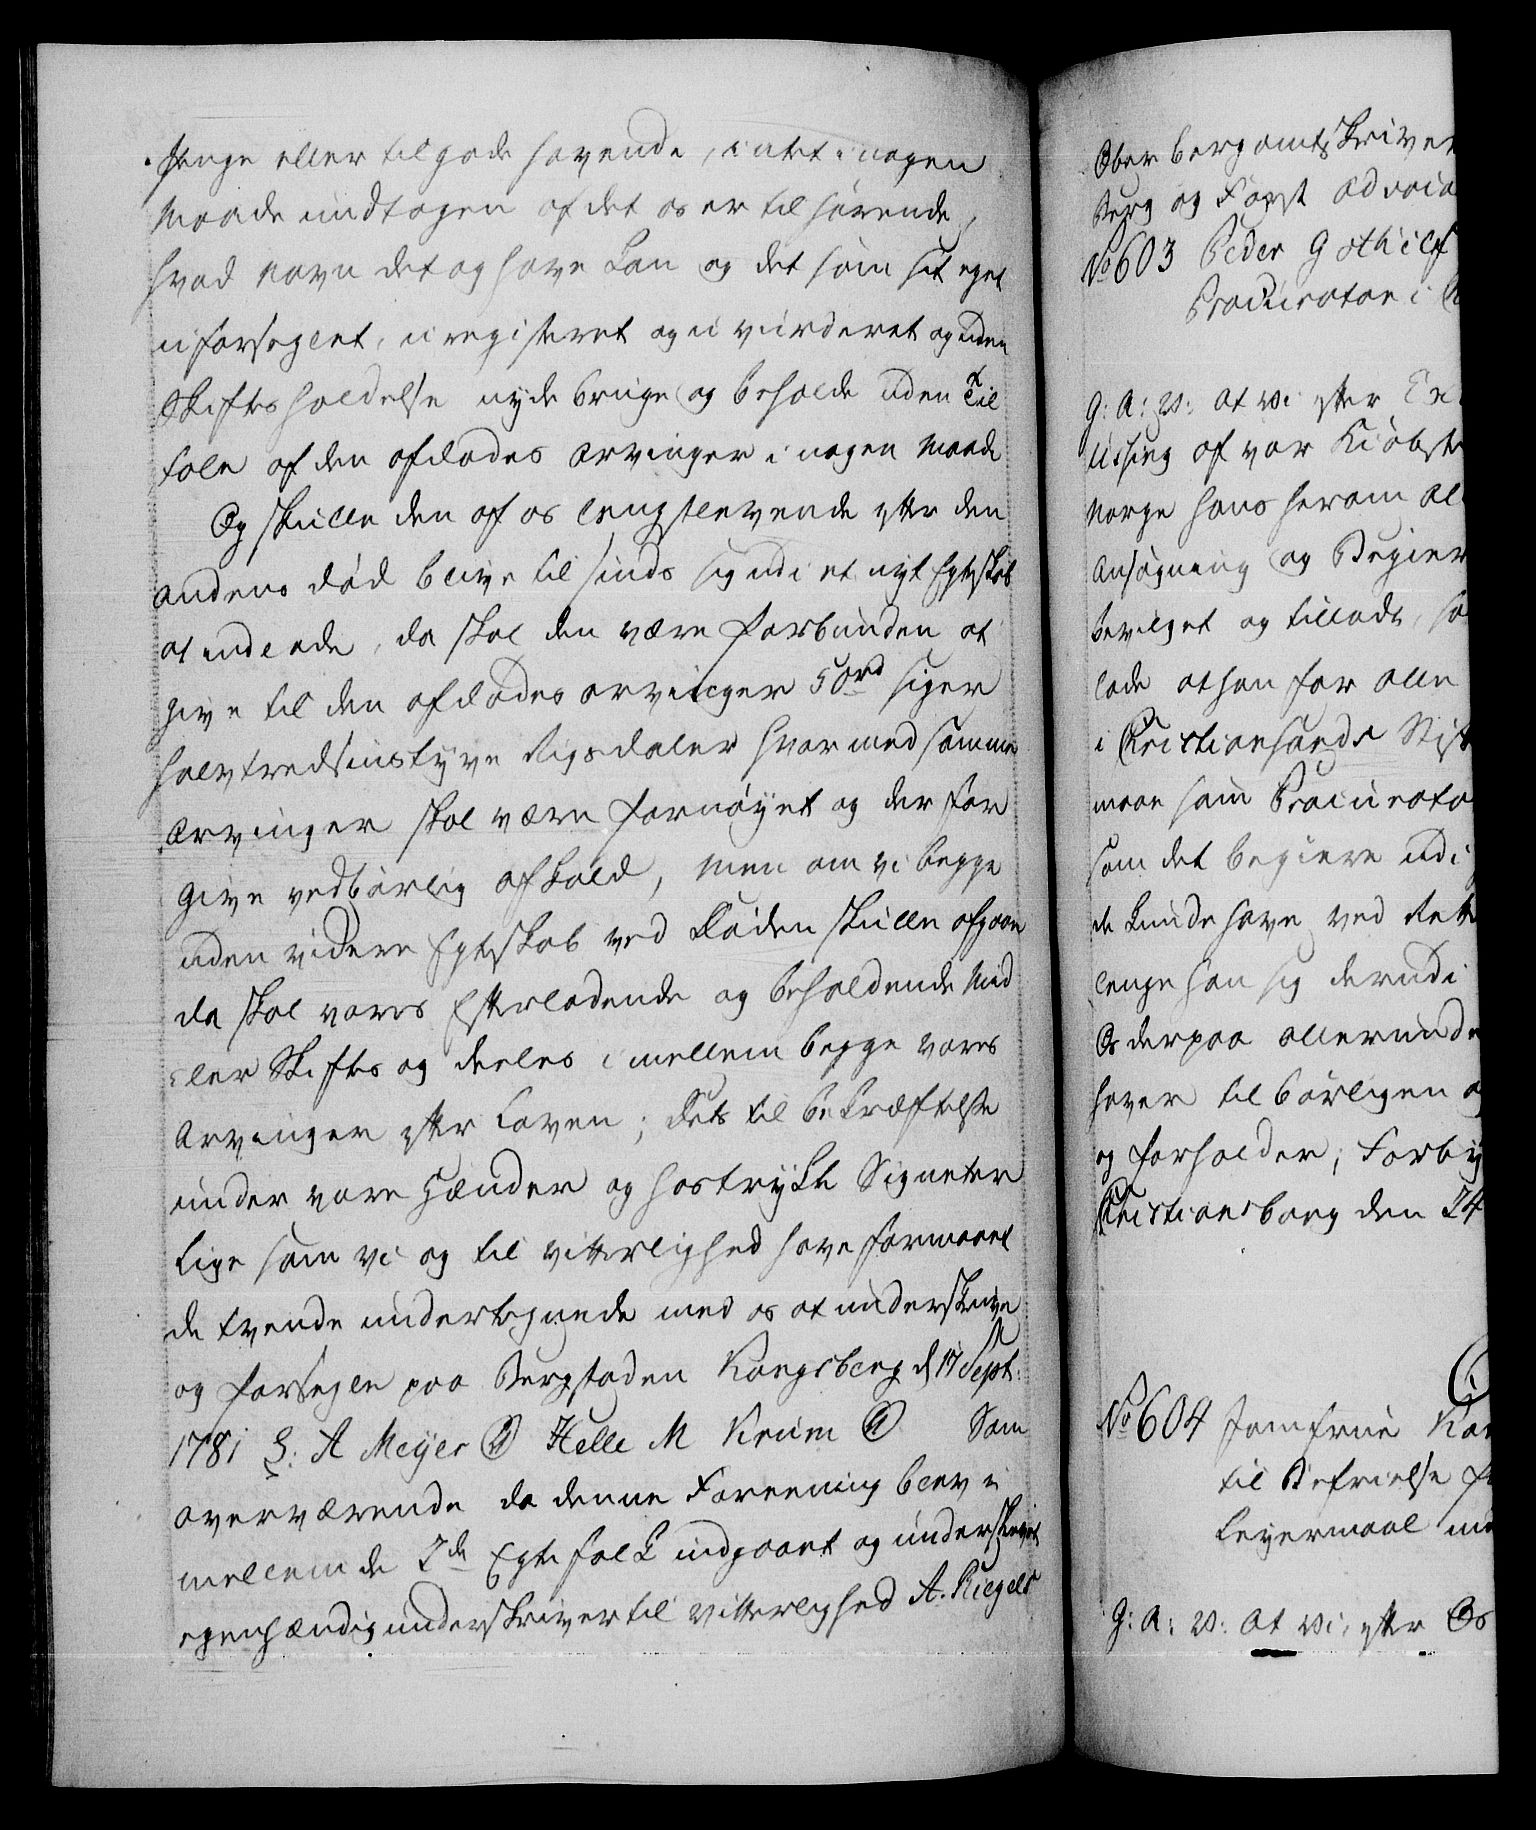 penge eller tilgode havende, intet i nogen
Maade undtagen af det os er tilhørende,
hvad navn det og have kan og det som sit eget
uforseglet, u registeret og u vurderet og uden
Skiftes holdelse nyde bruge og beholde uden Til
tale af den afdødes arvinger i nogen maade
Og skulle den af os lengstlevende efter den
andens død blive til sinds sig udi et nyt Egteskab
at indlade, da skal den være forbunden at
give til den afdødes arvinger 50 rd siger
halvtredsinstyve Rigsdaler hvormed samme
Arvinger skal være fornøyet og derfor
give vedbørlig afkald, men om vi begge
uden videre Egteskab ved Døden skulle afgaae
da skal vores Efterladende og beholdende Mid
ler Skiftes og deeles imellem begge vores
Arvinger efter Loven; Dets til bekræftelse
under vore Hænder og hostrykte Signeter
lige som vi og til vitterlighed have formaaet
de tvende undertegnede med os at underskrive
og forsegle paa Bergstaden Kongsberg d 17 Sept:
1781 L: A Meyer Helle M Krum Som
overværende da denne Foreening blev i
mellem de 2de Egtefolk indgaaet og underskrevet
egenhændig underskriver til vitterlighed A. Riegels
Oberbergamtskriver
Berg og Forst advoca
No 603 Peder Gothilf
Procurator i
G: A: V: At Vi efter
Ussing af vor Kiøbst
Norge hans herom al
Ansøgning og Begier
bevilget og tilladt, sa
lade at han for alle
i Christiansands Stift
maae som Procurato
som det begiere udi
de kunde have ved Rett
lenge han sig derudi
Os derpaa allerunde
haver tilbørligen
og forholder; Forby
Christiansborg den 24
No 604 Jomfrue Kar
til Befrielse f
Leyermaal
G: A: V: At Vi, efter Os